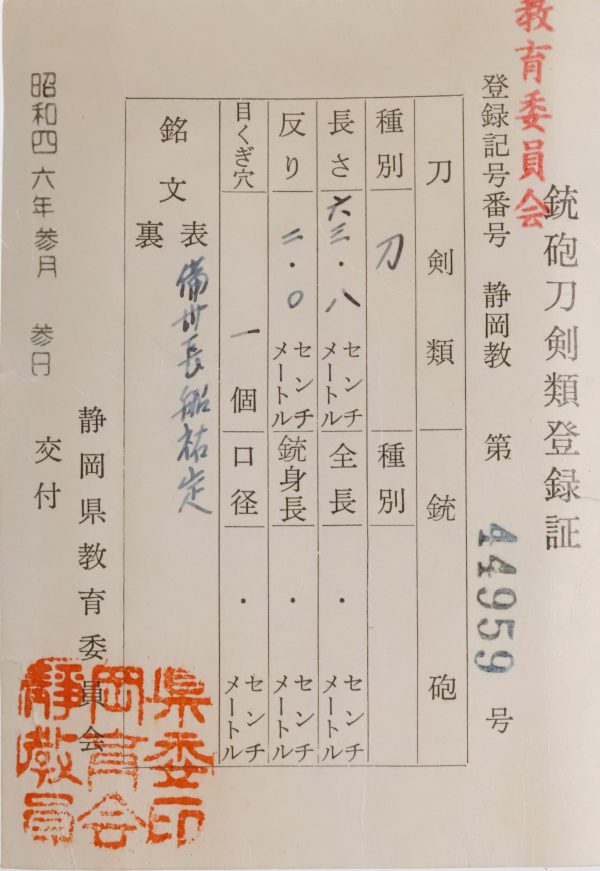 教育委員会
銃砲刀剣類登録証
登録記号番号 静岡教 第 44959 号
刀剣類 銃砲
種別 刀 種別
長さ 六三・八 センチメートル 全長 ・ センチメートル
反り 二・〇 センチメートル 銃身長 ・ センチメートル
目くぎ穴 一個 口径 ・ センチメートル
銘文 表 備州長船祐定
裏
静岡県教育委員会
昭和四六年参月 参日 交付
静岡県教育委員会印